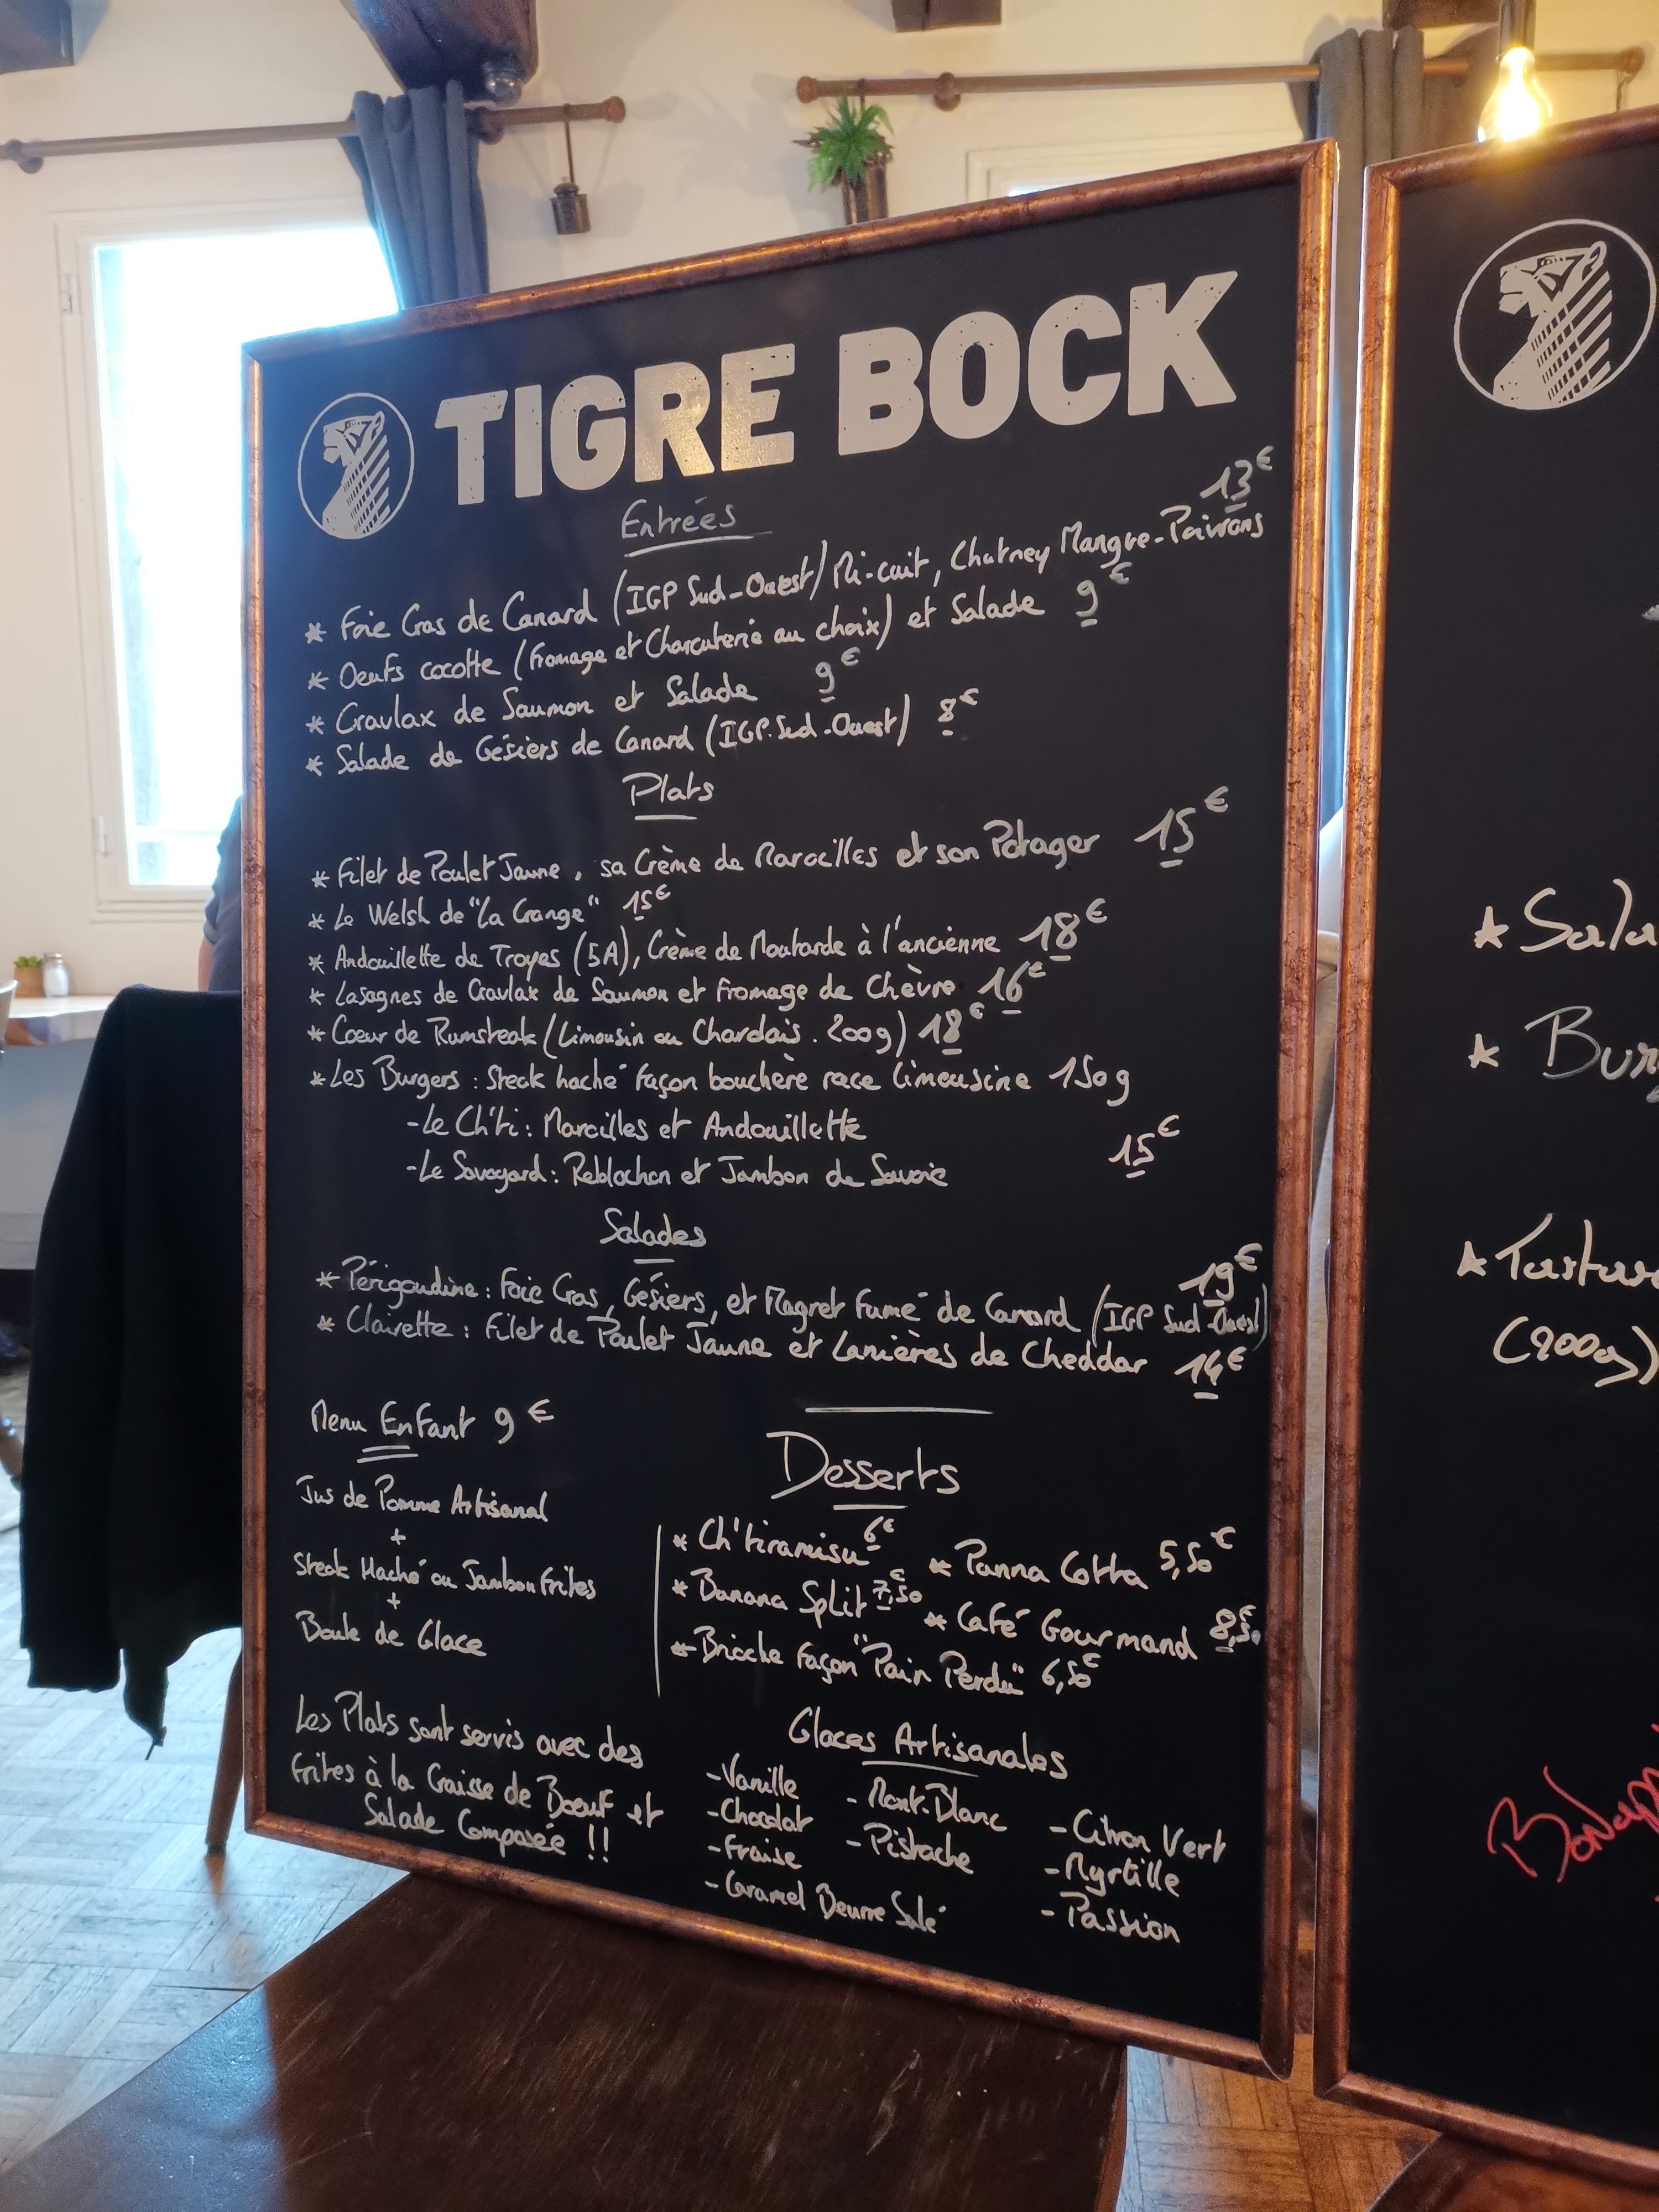 TIGRE BOCK
Entrées
13€
* Foie Gras de Canard (IGP Sud-Ouest) Mi-cuit, Chutney Mangue-Poivrons
* Oeufs cocotte (Fromage et Charcuterie au choix) et Salade 9€
* Gravlax de Saumon et Salade 9€
* Salade de Gésiers de Canard (IGP.Sud-Ouest) 8€
Plats
* Filet de Poulet Jaune, sa Crème de Maroilles et son Potager 15€
* Le Welsh de "La Grange" 15€
* Andouillette de Troyes (5A), Crème de Moutarde à l'ancienne 18€
* Lasagnes de Gravlax de Saumon et Fromage de Chèvre 16€
* Coeur de Rumsteak (Limousin ou Charolais. 200g) 18€
* Les Burgers : Steck haché façon bouchère race limousine 150g
-Le Ch'ti : Maroilles et Andouillette
-Le Savoyard : Reblochon et Jambon de Savoie 15€
Salades
19€
* Périgourdine : Foie Gras, Gésiers, et Magret Fumé de Canard (IGP Sud-Ouest)
* Clairette : Filet de Poulet Jaune et Lanières de Cheddar 14€
Menu Enfant 9€
Jus de Pomme Artisanal
+
Steak Haché ou Jambon Frites
+
Boule de Glace
Desserts
* Ch'tiramisu 6€ * Panna Cotta 5,50€
* Banana Split 7,50€ * Café Gourmand 8,50€
* Brioche façon "Pain Perdu" 6,50€
Les Plats sont servis avec des
frites à la Graisse de Boeuf et
Salade Composée !!
Glaces Artisanales
-Vanille -Mont-Blanc -Citron Vert
-Chocolat -Pistache -Myrtille
-Fraise -Passion
-Caramel Beurre Salé
* Sala
* Bur
* Tartar
(200g)